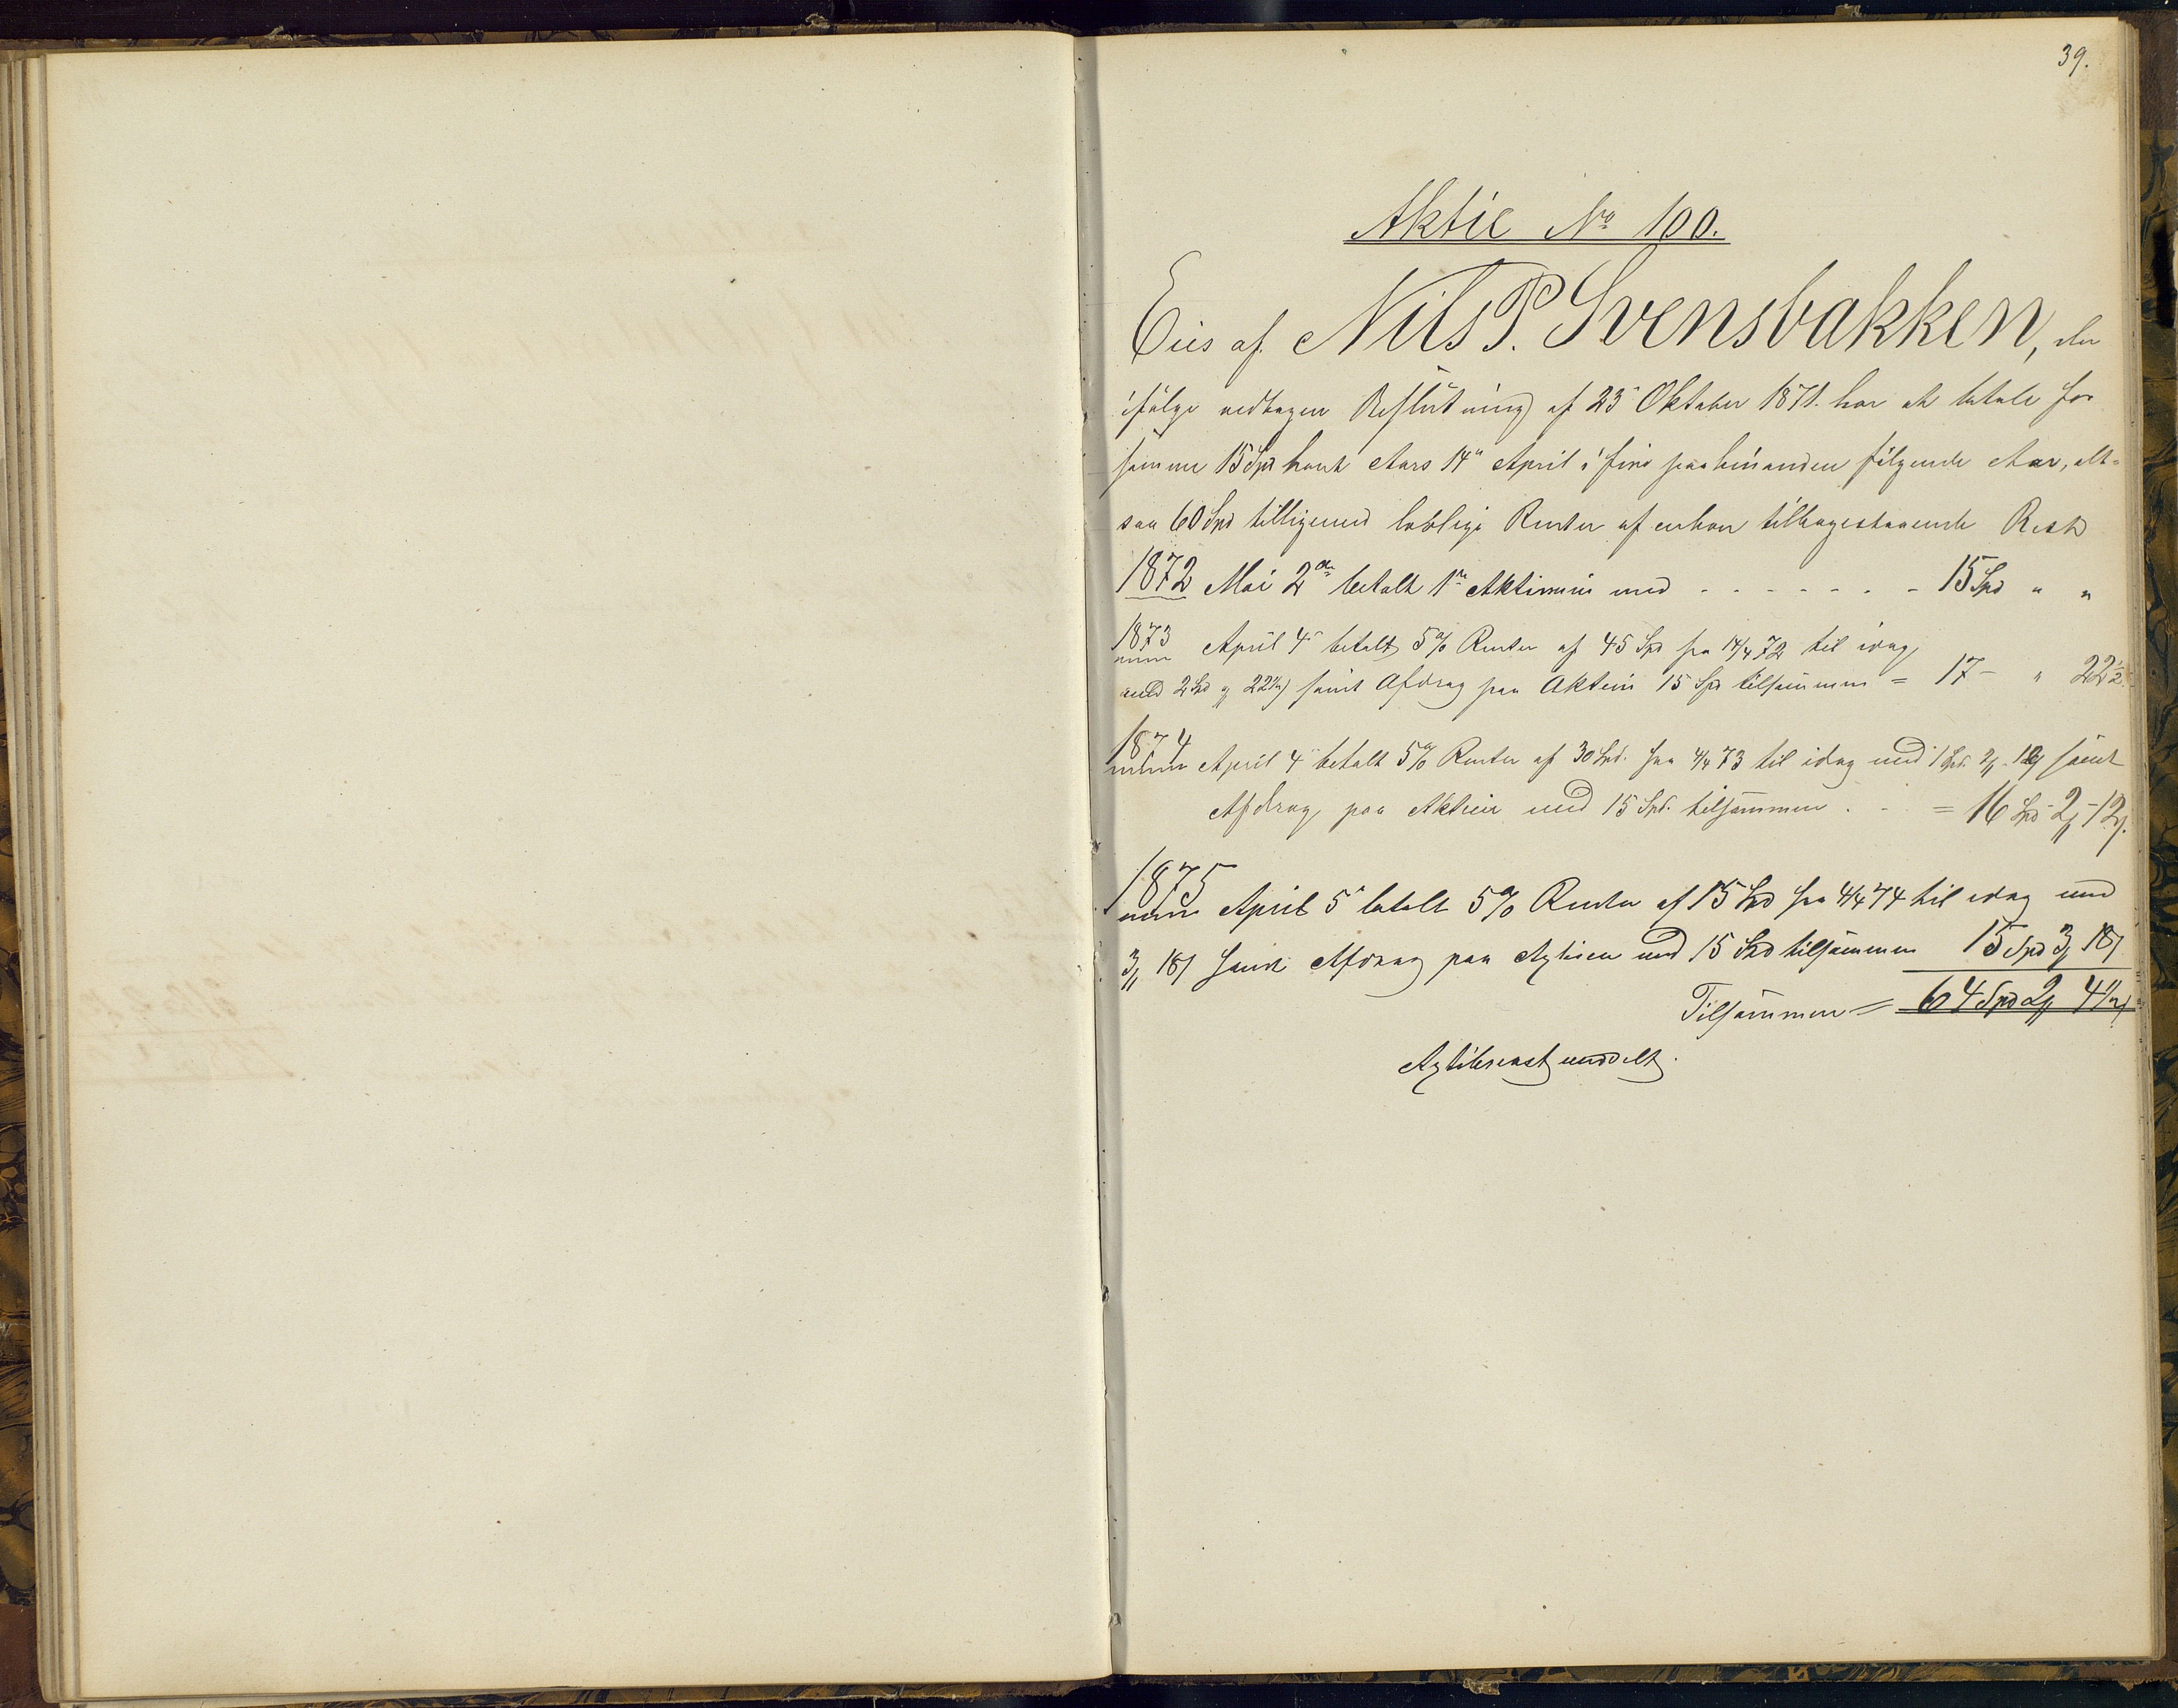 39.
Aktie No 100.
Eies af Nils P. Svensbakken, der
ifølge vedtagen Beslutning af 23" Oktober 1871. har at betale for
samme 15 Spd hvert Aars 14" April i fire paa hinanden følgende Aar, alt-
saa 60 Spd tilligemed lovlige Renter af enhver tilbagestaaende Rest
1872 Mai 2den betalt 1ste Aktietermin med - - - - - - - 15 Spd " "
1873 April 4" betalt 5% Renter af 45 Spd fra 14/4 72 til idag
med 2 Spd " 22½ samt Afdrag paa Aktien 15 Spd tilsammen = 17 - " 22½
1874 April 4" betalt 5% Renter af 30 Spd. fra 4/4 73 til idag med 1 Spd. 2 - 12 samt
Afdrag paa Aktien med 15 Spd. tilsammen . - = 16 Spd - 2 - 12.
1875 April 5" betalt 5% Renter af 15 Spd fra 4/4 74 til idag med
3 18 samt Afdrag paa Aktien med 15 Spd tilsammen 15 Spd 3 18
Tilsammen = 64 Spd 2 4½